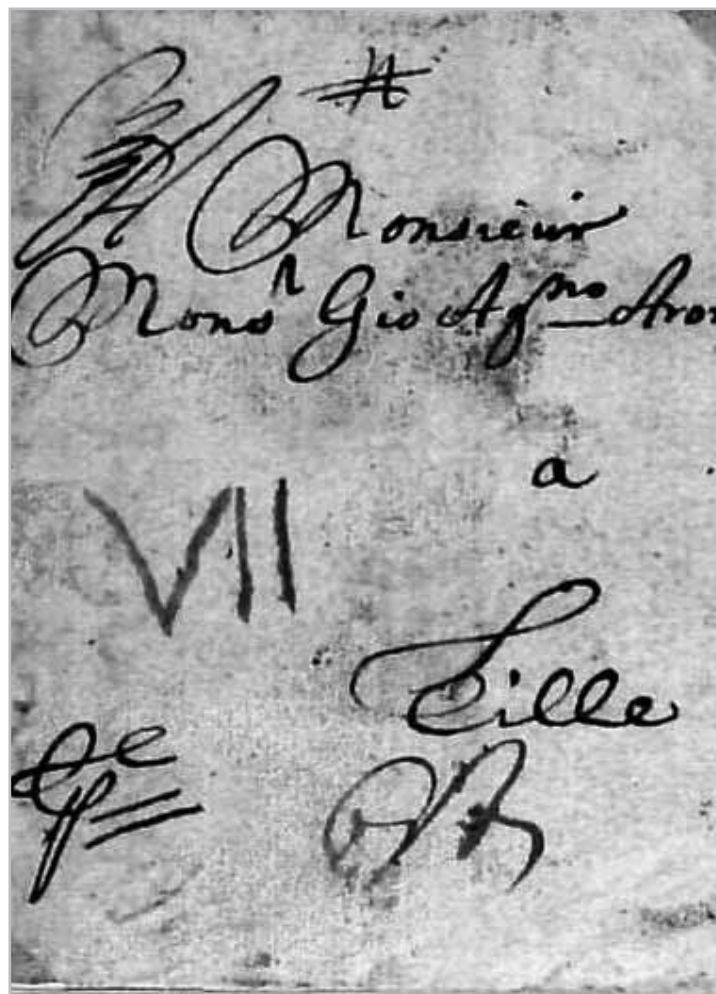 Monsieur
Monsr Gio Agno
a
VII
Lille